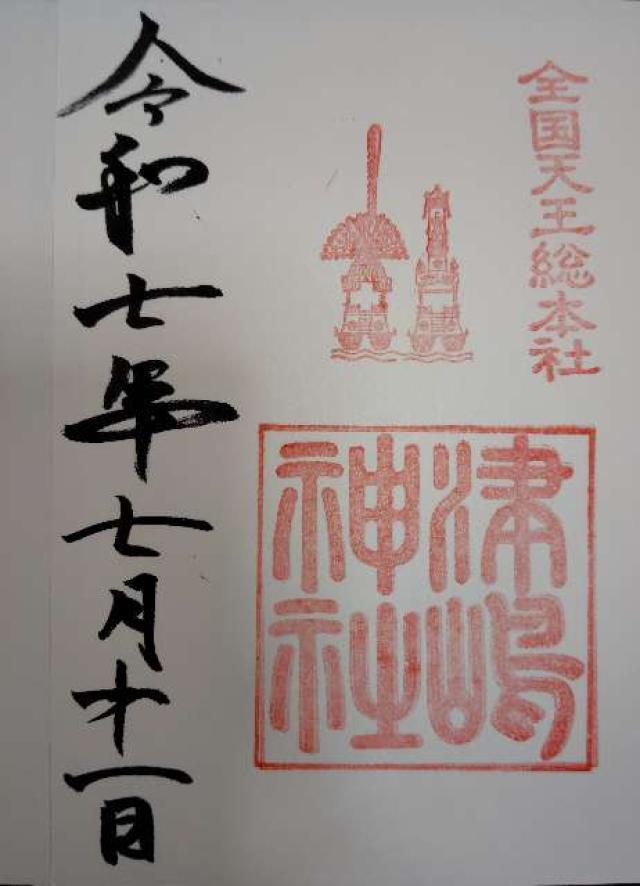 全国天王総本社
津嶋
神社
令和七年七月十一日